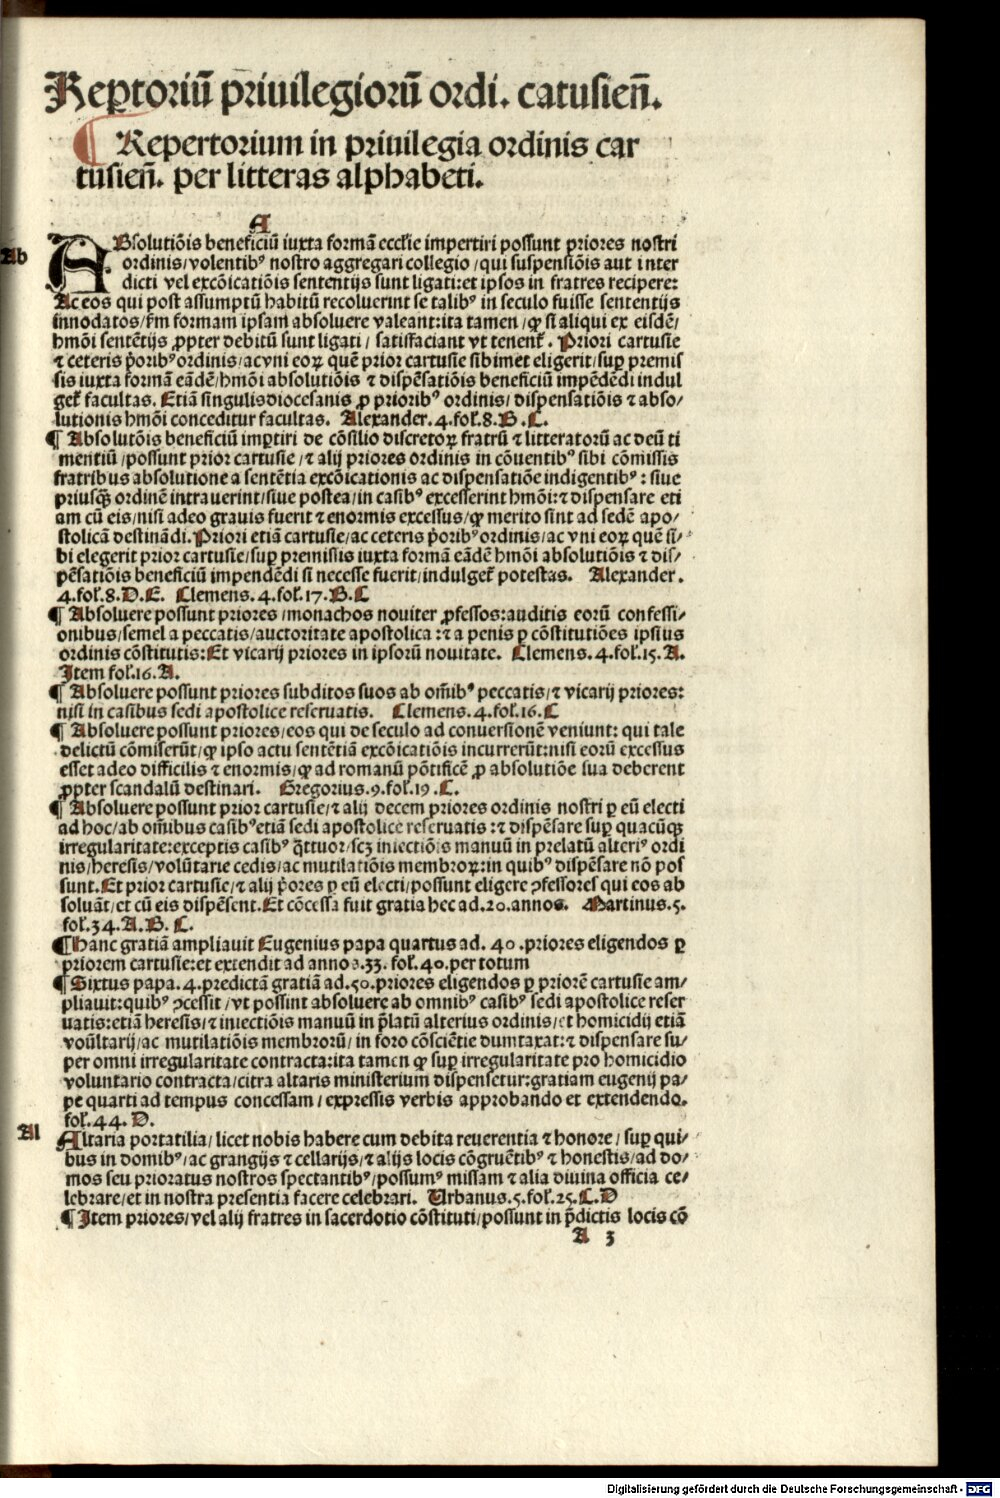 Reptoriū priuilegiorū ordi. catusieñ.
¶ Repertorium in priuilegia ordinis car
tusieñ. per litteras alphabeti.
A
Ab
ABsolutiōis beneficiū iuxta formā ecclīe impertiri possunt priores nostri
ordinis/volentibꝰ nostro aggregari collegio/qui suspensiōis aut inter
dicti vel excōicatiōis sententijs sunt ligati:et ipsos in fratres recipere:
Ac eos qui post assumptū habitū recoluerint se talibꝰ in seculo fuisse sententijs
innodatos/km̄ formam ipsam absoluere valeant:ita tamen/ꝙ si aliqui ex eisdē/
hmōi sentētijs ꝓpter debitū sunt ligati/ satisfaciant vt tenent̄. Priori cartusie
⁊ ceteris p̄oribꝰ ordinis/ac vni eoꝝ quē prior cartusie sibimet eligerit/suꝑ premis
sis iuxta formā eādē/hmōi absolutiōis ⁊ dispēsatiōis beneficiū impēdēdi indul
get̄ facultas. Etiā singulis diocesanis ꝓ prioribꝰ ordinis/ dispensatiōis ⁊ abso/
lutionis hmōi conceditur facultas. Alexander.4.fol̄.8.B.C.
¶ Absolutōis beneficiū imꝑtiri de cōsilio discretoꝝ fratrū ⁊ litteratorū ac deū ti
mentiū/possunt prior cartusie/⁊ alij priores ordinis in cōuentibꝰ sibi cōmissis
fratribus absolutione a sentētia excōicationis ac dispensatiōe indigentibꝰ: siue
priusq̄ꝫ ordinē intrauerint/siue postea/in casibꝰ excesserint hmōi:⁊ dispensare eti
am cū eis/nisi adeo grauis fuerit ⁊ enormis excessus/ꝙ merito sint ad sedē apo/
stolicā destinādi. Priori etiā cartusie/ac ceteris p̄oribꝰ ordinis/ac vni eoꝝ quē si/
bi elegerit prior cartusie/suꝑ premissis iuxta formā eādē hmōi absolutiōis ⁊ dis/
pēsatiōis beneficiū impendēdi si necesse fuerit/indulget̄ potestas. Alexander.
4.fol̄.8.D.E. Clemens.4.fol̄.17.B.C
¶ Absoluere possunt priores/monachos nouiter ꝓfessos:auditis eorū confessi/
onibus/semel a peccatis/auctoritate apostolica:⁊ a penis ꝑ cōstitutiōes ipsius
ordinis cōstitutis:Et vicarij priores in ipsorū nouitate. Clemens.4.fol̄.15.A.
Item fol̄.16.A.
¶ Absoluere possunt priores subditos suos ab om̄ibꝰ peccatis/⁊ vicarij priores:
nisi in casibus sedi apostolice reseruatis. Clemens.4.fol̄.16.C
¶ Absoluere possunt priores/eos qui de seculo ad conuersionē veniunt: qui tale
delictū cōmiserūt/ꝙ ipso actu sentētiā excōicatiōis incurrerūt:nisi eorū excessus
esset adeo difficilis ⁊ enormis/ꝙ ad romanū pōtificē ꝓ absolutiōe sua deberent
ꝓpter scandalū destinari. Gregorius.9.fol̄.19.C.
¶ Absoluere possunt prior cartusie/⁊ alij decem priores ordinis nostri ꝑ eū electi
ad hoc/ab om̄ibus casibꝰ etiā sedi apostolice reseruatis:⁊ dispēsare suꝑ quacūqꝫ
irregularitate:exceptis casibꝰ q̄ttuor/scꝫ iniectiōis manuū in prelatū alteriꝰ ordi
nis/heresis/volūtarie cedis/ac mutilatiōis membroꝝ:in quibꝰ dispēsare nō pos
sunt.Et prior cartusie/⁊ alij p̄ores ꝑ eū electi/possunt eligere ꝯfessores qui eos ab
soluāt/et cū eis dispēsent.Et cōcessa fuit gratia hec ad.20.annos. Martinus.5.
fol̄.34.A.B.C.
¶ Hanc gratiā ampliauit Eugenius papa quartus ad.40.priores eligendos ꝑ
priorem cartusie:et extendit ad annos.33. fol̄.40.per totum
¶ Sixtus papa.4.predictā gratiā ad.50.priores eligendos ꝑ priorē cartusie am/
pliauit:quibꝰ ꝯcessit/vt possint absoluere ab omnibꝰ casibꝰ sedi apostolice reser
uatis:etiā heresis/⁊ iniectiōis manuū in p̄latū alterius ordinis/et homicidij etiā
voūltarij/ac mutilatiōis membrorū/ in foro cōsciētie dumtaxat:⁊ dispensare su/
per omni irregularitate contracta:ita tamen ꝙ suꝑ irregularitate pro homicidio
voluntario contracta/citra altaris ministerium dispensetur:gratiam eugenij pa/
pe quarti ad tempus concessam/expressis verbis approbando et extendendo.
fol̄.44.D.
Al
Altaria portatilia/licet nobis habere cum debita reuerentia ⁊ honore/suꝑ qui/
bus in domibꝰ/ac grangijs ⁊ cellarijs/⁊ alijs locis cōgruētibꝰ ⁊ honestis/ad do/
mos seu prioratus nostros spectantibꝰ/possumꝰ missam ⁊ alia diuina officia ce/
lebrare/et in nostra presentia facere celebrari. Urbanus.5.fol̄.25.C.D
¶ Item priores/vel alij fratres in sacerdotio cōstituti/possunt in p̄dictis locis cō
A 3
Digitalisierung gefördert durch die Deutsche Forschungsgemeinschaft - DFG